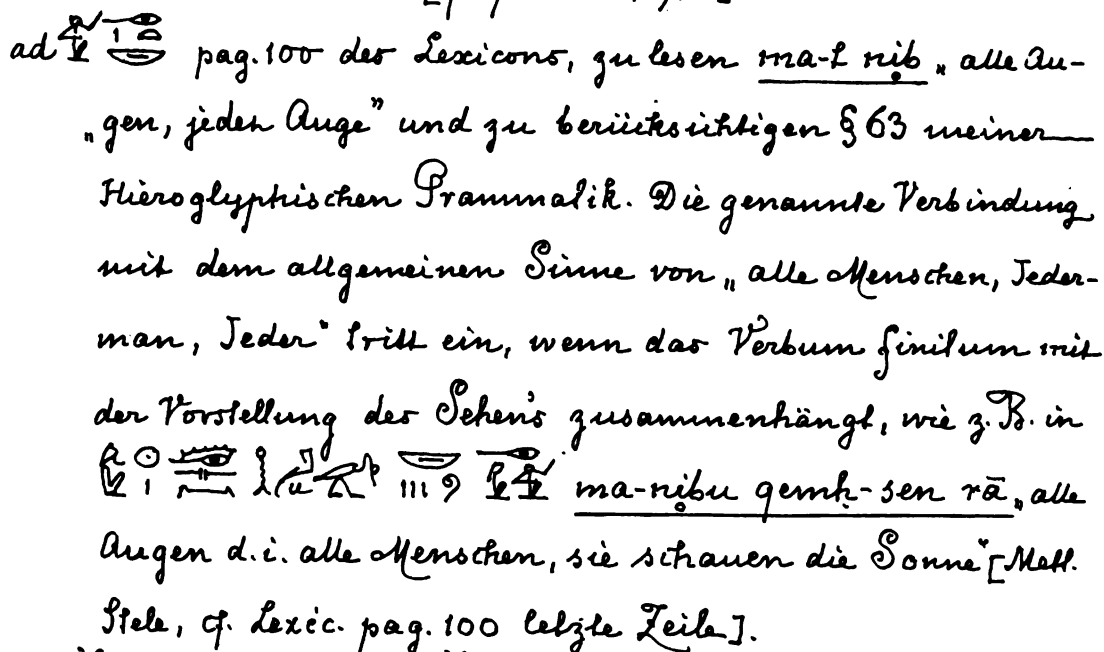 ad pag. 100 des Lexicons, zu lesen ma-t nib „alle Au-
„gen, jedes Auge” und zu berücksichtigen § 63 meiner
Hieroglyphischen Grammatik. Die genannte Verbindung
mit dem allgemeinen Sinne von „alle Menschen, Jeder-
man, Jeder“ tritt ein, wenn das Verbum finitum mit
der Vorstellung des Sehen's zusammenhängt, wie z. B. in
ma-nibu qemḥ-sen rā „alle
Augen d. i. alle Menschen, sie schauen die Sonne” [Mett.
Stele, cf. Lexic. pag. 100 letzte Zeile].